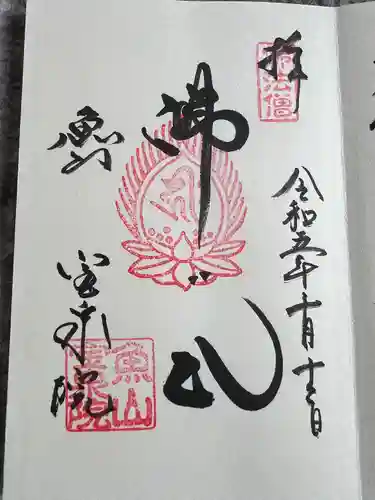 拝
佛法僧
令和五年十月十三日
佛心
魚山
宝泉院
魚山